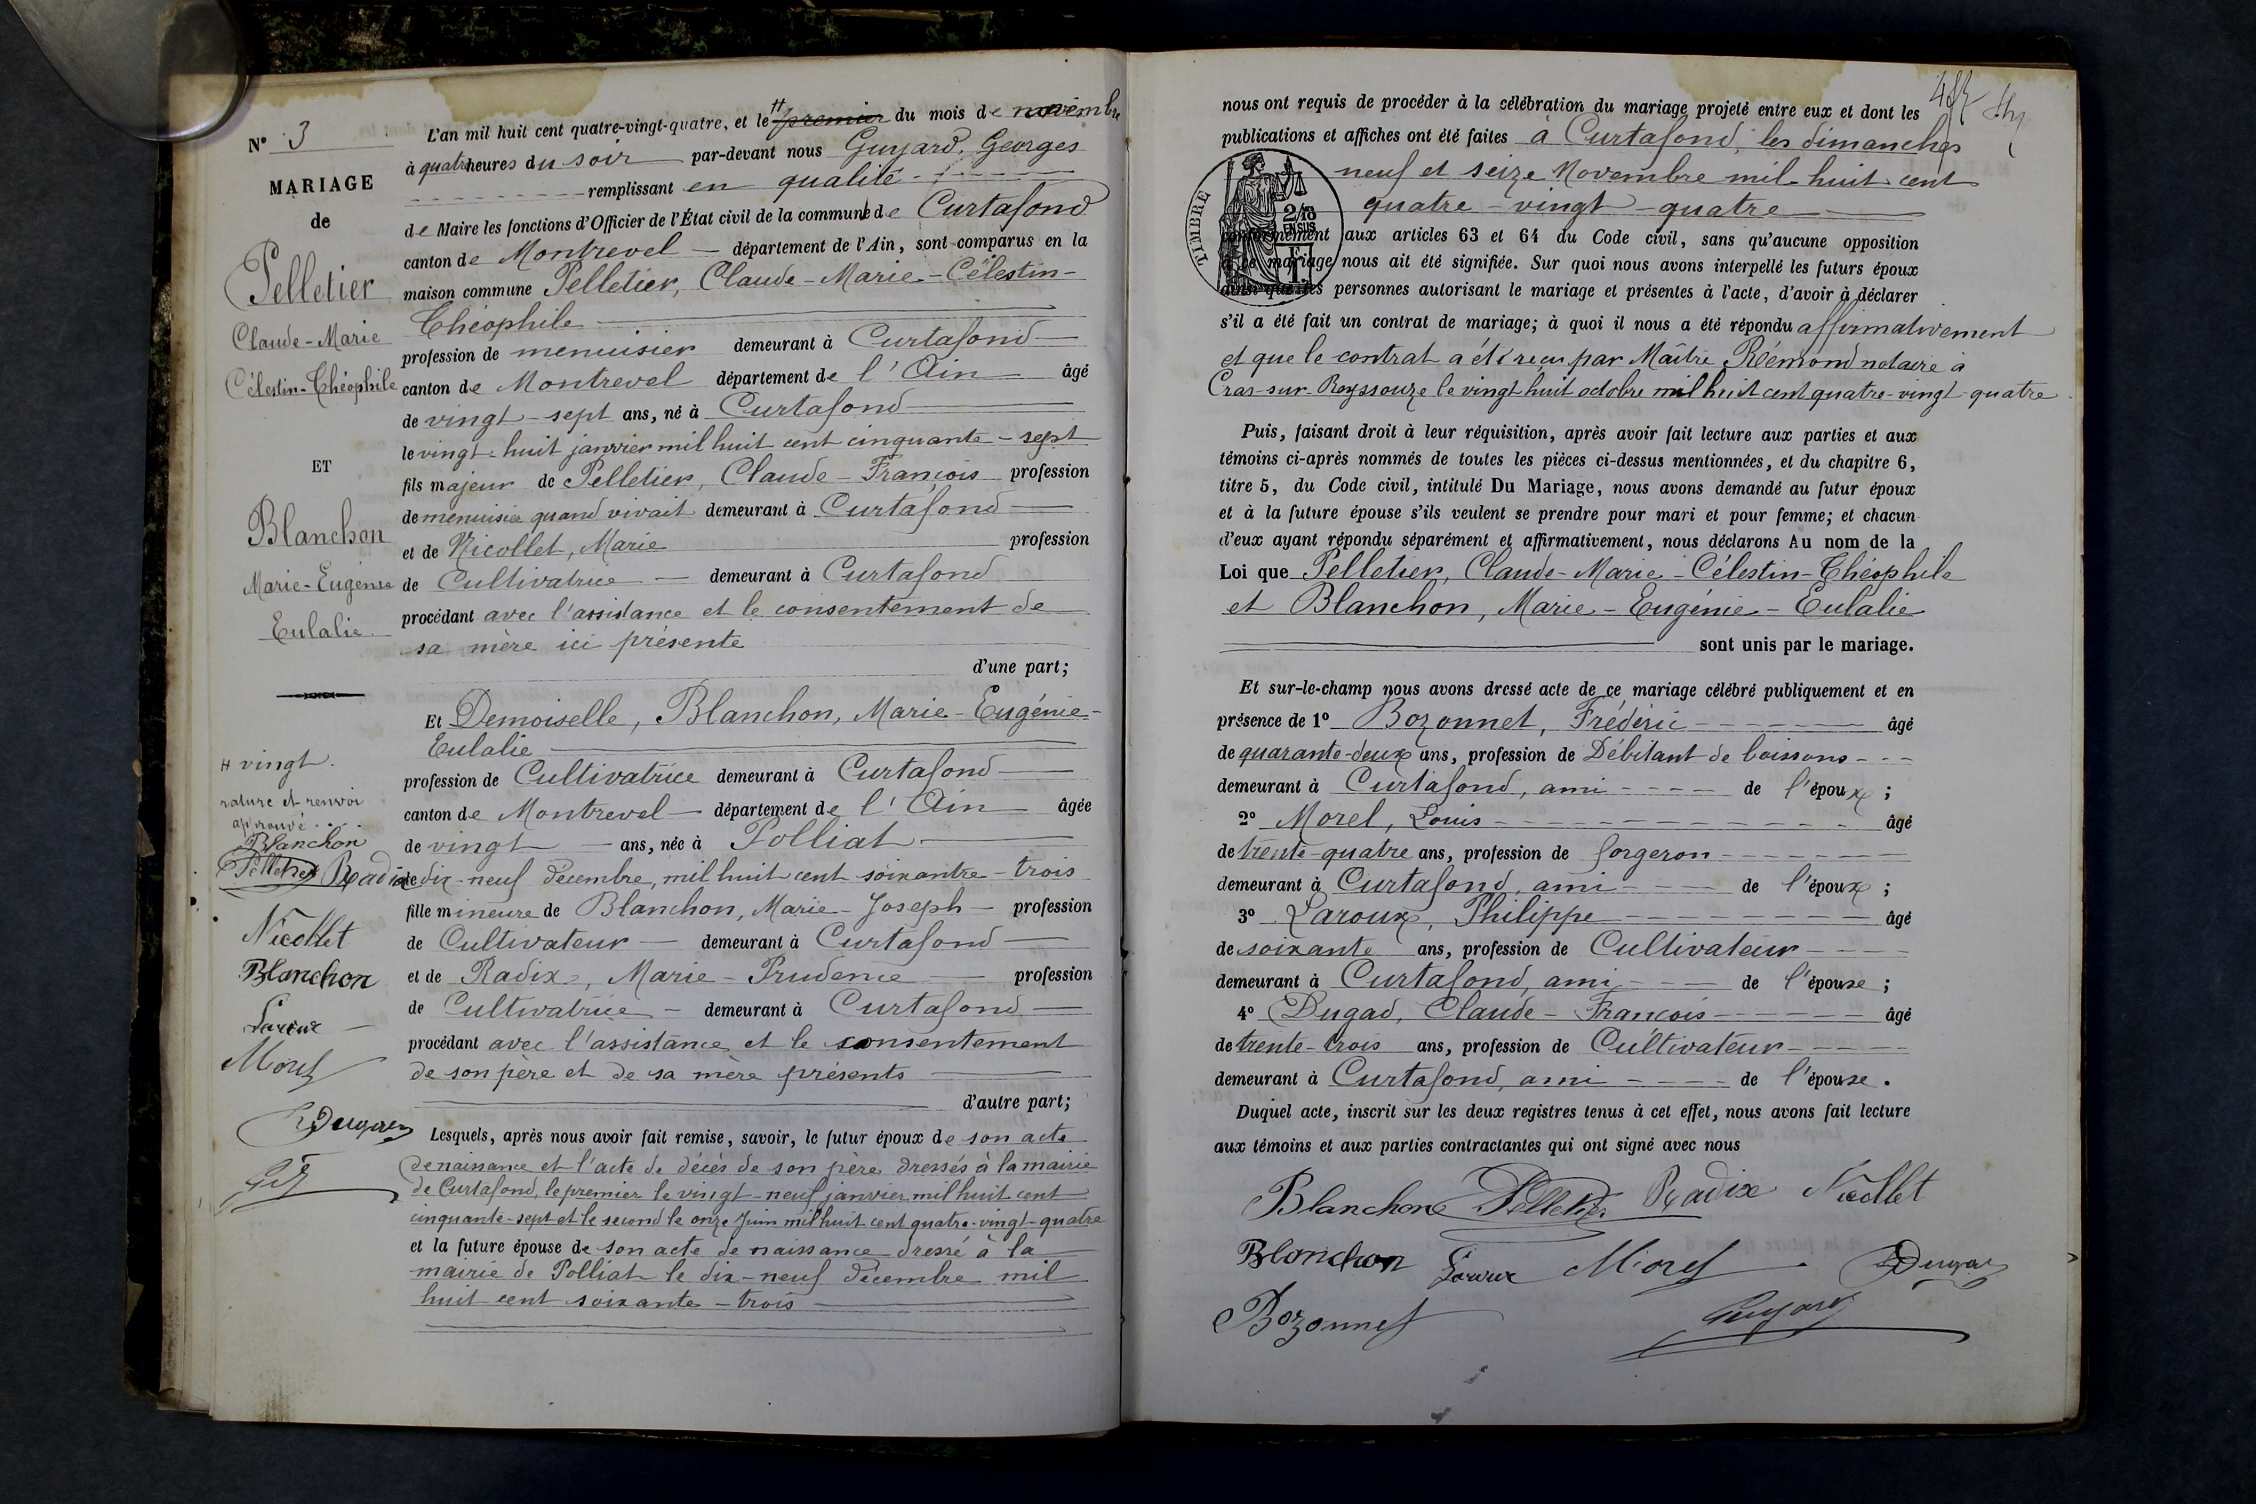 N° 3
MARIAGE
de
Pelletier
Claude-Marie
Célestin-Théophile
ET
Blanchon
Marie-Eugénie
Eulalie
# vingt.
rature et renvoi
approuvé....
Blanchon
Pelletier Radix
Nicollet
Blanchon
Laroux
Morel
Dugad
L'an mil huit cent quatre-vingt-quatre, et le # premier du mois de novembre
à quatre heures du soir par-devant nous Guyard, Georges
remplissant en qualité
de Maire les fonctions d'Officier de l'État civil de la commune de Curtafond
canton de Montrevel — département de l'Ain, sont comparus en la
maison commune Pelletier, Claude-Marie-Célestin-
Théophile
profession de menuisier demeurant à Curtafond
canton de Montrevel département de l'Ain âgé
de vingt-sept ans, né à Curtafond
le vingt-huit janvier mil huit cent cinquante-sept
fils majeur de Pelletier, Claude-François profession
de menuisier quand vivait demeurant à Curtafond
et de Nicollet, Marie profession
de Cultivatrice — demeurant à Curtafond
procédant avec l'assistance et le consentement de
sa mère ici présente
d'une part;
Et Demoiselle, Blanchon, Marie-Eugénie-
Eulalie
profession de Cultivatrice demeurant à Curtafond
canton de Montrevel — département de l'Ain âgée
de vingt — ans, née à Polliat
le dix-neuf décembre, mil huit cent soixantre-trois
fille mineure de Blanchon, Marie-Joseph — profession
de Cultivateur — demeurant à Curtafond
et de Radix, Marie-Prudence — profession
de Cultivatrice — demeurant à Curtafond
procédant avec l'assistance et le consentement
de son père et de sa mère présents
d'autre part;
Lesquels, après nous avoir fait remise, savoir, le futur époux de son acte
de naissance et l'acte de décès de son père dressés à la mairie
de Curtafond, le premier le vingt-neuf janvier mil huit cent
cinquante-sept et le second le onze Juin mil huit cent quatre-vingt-quatre
et la future épouse de son acte de naissance dressé à la
mairie de Polliat le dix-neuf décembre mil
huit cent soixante-trois
nous ont requis de procéder à la célébration du mariage projeté entre eux et dont les
publications et affiches ont été faites à Curtafond, les dimanches
neuf et seize Novembre mil-huit-cent
quatre-vingt-quatre
TIMBRE
2/10
EN SUS
conformément aux articles 63 et 64 du Code civil, sans qu'aucune opposition
à ce mariage nous ait été signifiée. Sur quoi nous avons interpellé les futurs époux
ainsi que les personnes autorisant le mariage et présentes à l'acte, d'avoir à déclarer
s'il a été fait un contrat de mariage; à quoi il nous a été répondu affirmativement
et que le contrat a été reçu par Maître Rémond notaire à
Cras-sur-Reyssouze le vingt huit octobre mil huit cent quatre-vingt-quatre
Puis, faisant droit à leur réquisition, après avoir fait lecture aux parties et aux
témoins ci-après nommés de toutes les pièces ci-dessus mentionnées, et du chapitre 6,
titre 5, du Code civil, intitulé Du Mariage, nous avons demandé au futur époux
et à la future épouse s'ils veulent se prendre pour mari et pour femme; et chacun
d'eux ayant répondu séparément et affirmativement, nous déclarons Au nom de la
Loi que Pelletier, Claude-Marie-Célestin-Théophile
et Blanchon, Marie-Eugénie-Eulalie
sont unis par le mariage.
Et sur-le-champ nous avons dressé acte de ce mariage célébré publiquement et en
présence de 1° Bozonnet, Frédéric âgé
de quarante-deux ans, profession de Débitant de boissons
demeurant à Curtafond, ami de l'époux;
2° Morel, Louis âgé
de trente-quatre ans, profession de forgeron
demeurant à Curtafond, ami de l'époux;
3° Laroux, Philippe âgé
de soixante ans, profession de Cultivateur
demeurant à Curtafond, ami de l'épouse;
4° Dugad, Claude-François âgé
de trente-trois ans, profession de Cultivateur
demeurant à Curtafond, ami de l'épouse.
Duquel acte, inscrit sur les deux registres tenus à cet effet, nous avons fait lecture
aux témoins et aux parties contractantes qui ont signé avec nous
Blanchon Pelletier Radix Nicollet
Blanchon Laroux Morel Dugad
Bozonnet Guyard